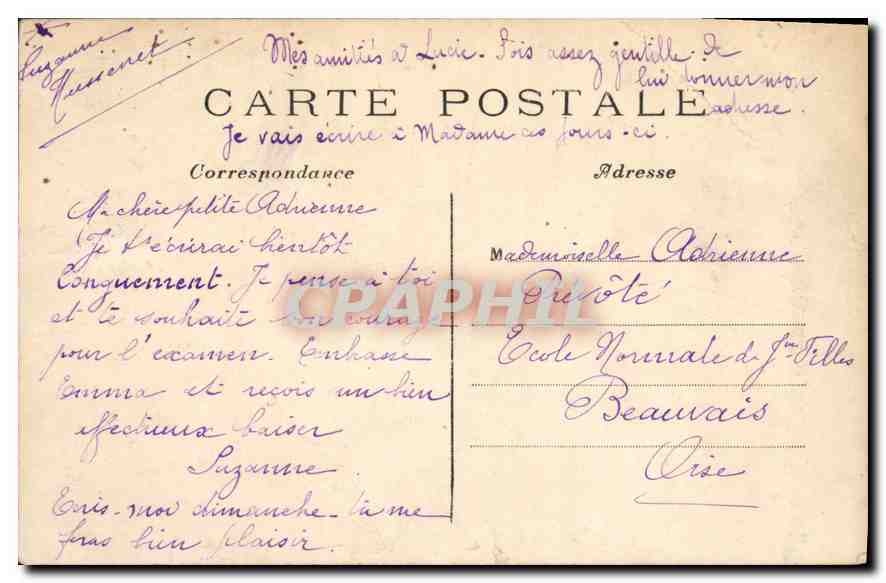 Suzanne
Mes amitiés à Lucie. Sois assez gentille de
lui donner mon
adresse.
CARTE POSTALE
Je vais écrire à Madame ces jours-ci.
Correspondance
Adresse
Ma chère petite Adrienne
Je t'écrirai bientôt
longuement. Je pense à toi
et te souhaite bon courage
pour l'examen. Embrasse
Emma et reçois un bien
affectueux baiser
Suzanne.
Ecris-moi dimanche. tu me
feras bien plaisir.
Mademoiselle Adrienne
Prevôté
Ecole Normale de Jnes Filles
Beauvais
Oise
CPAPHIL